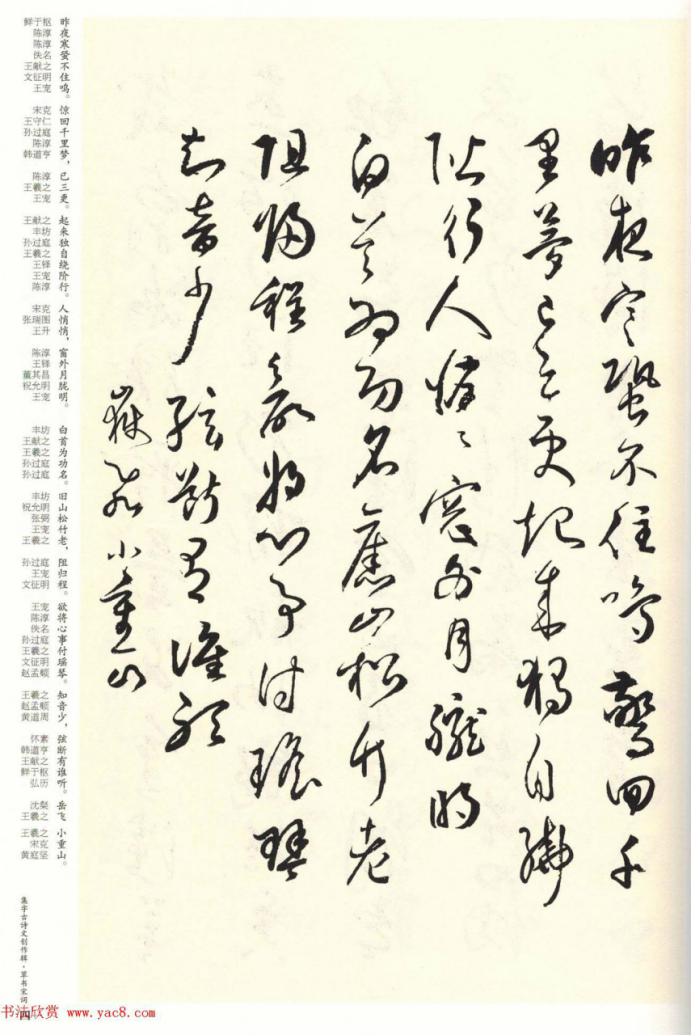 昨夜寒蛩不住鳴驚回千
里夢已三更起來獨自繞
階行人悄悄窗外月朧明
白首為功名舊山松竹老
阻歸程欲將心事付瑤琴
知音少弦斷有誰聽
嶽飛小重山
昨夜寒蛩不住鸣。惊回千里梦，已三更。起来独自绕阶行。人悄悄，窗外月胧明。白首为功名。旧山松竹老，阻归程。欲将心事付瑶琴。知音少，弦断有谁听。岳飞 小重山。
鲜于枢 陈淳 陈淳 佚名 王献之 文征明 王宠 宋克 王守仁 孙过庭 陈淳 韩道亨 陈淳 王羲之 王宠 王献之 丰坊 孙过庭 王羲之 王铎 王宠 陈淳 宋克 张瑞图 王升 陈淳 王铎 董其昌 祝允明 王宠 丰坊 王献之 王羲之 孙过庭 孙过庭 丰坊 祝允明 张弼 王宠 王羲之 孙过庭 王宠 文征明 王宠 陈淳 佚名 孙过庭 王羲之 文征明 赵孟頫 王羲之 赵孟頫 黄道周 怀素 韩道亨 王献之 鲜于枢 弘历 沈粲 王羲之 王羲之 宋克 黄庭坚
集字古诗文创作辑·草书宋词
四
书法欣赏 www.yac8.com